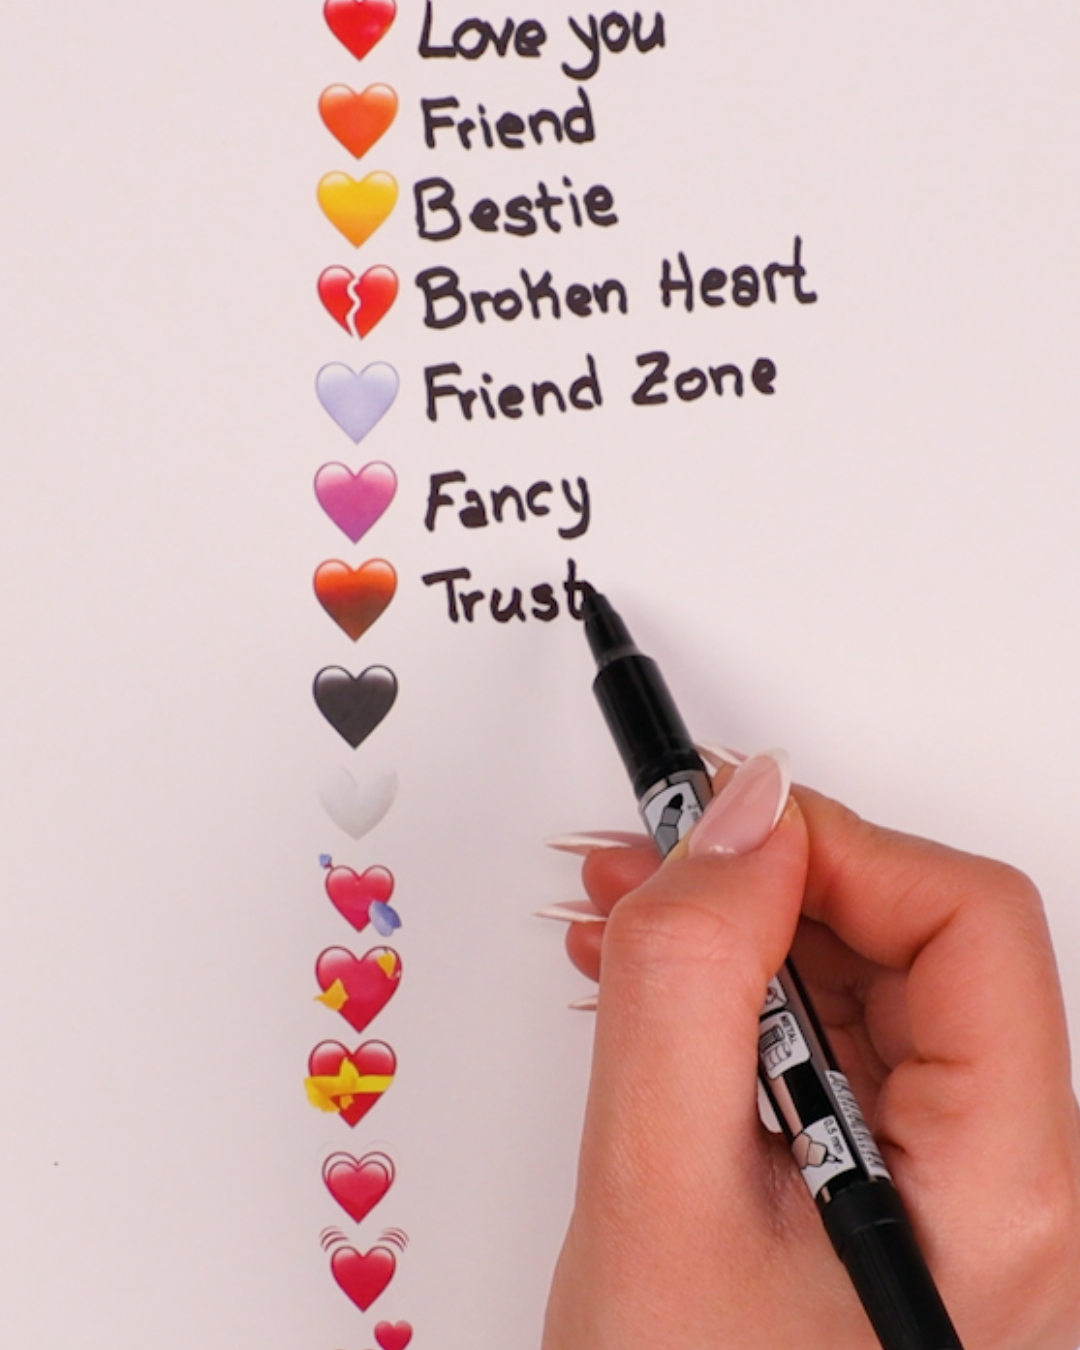 Love you
Friend
Bestie
Broken Heart
Friend Zone
Fancy
Trust
METAL
0.5 mm